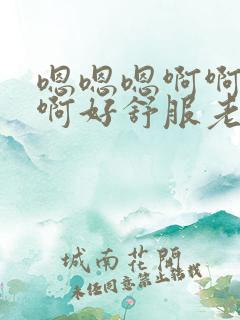 嗯嗯嗯啊啊
啊好舒服老
城南花開
未经同意禁止转载